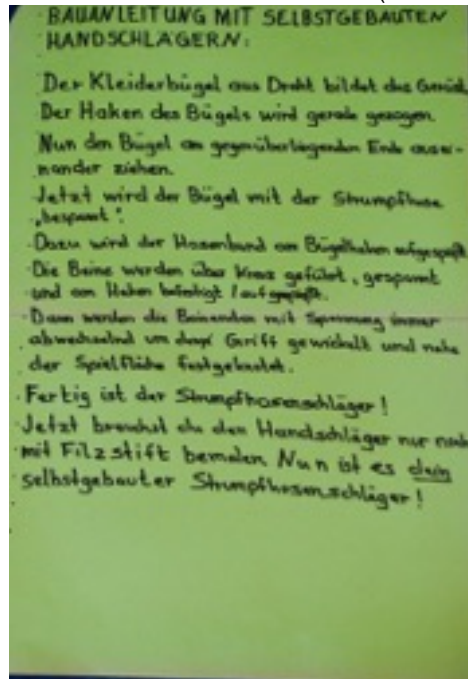 BAUANLEITUNG MIT SELBSTGEBAUTEN
HANDSCHLÄGERN:
Der Kleiderbügel aus Draht bildet das Gerüst.
Der Haken des Bügels wird gerade gezogen.
Nun den Bügel am gegenüberliegenden Ende ausei-
nander ziehen.
Jetzt wird der Bügel mit der Strumpfhose
„bespannt".
Dazu wird der Hosenbund am Bügelhaken aufgespießt
Die Beine werden über Kreuz geführt, gespannt
und am Haken befestigt / aufgespießt.
Dann werden die Beinenden mit Spannung immer
abwechselnd um den Griff gewickelt und nahe
der Spielfläche festgeknotet.
Fertig ist der Strumpfhosenschläger!
Jetzt brauchst du den Handschläger nur noch
mit Filzstift bemalen. Nun ist es dein
selbstgebauter Strumpfhosenschläger!